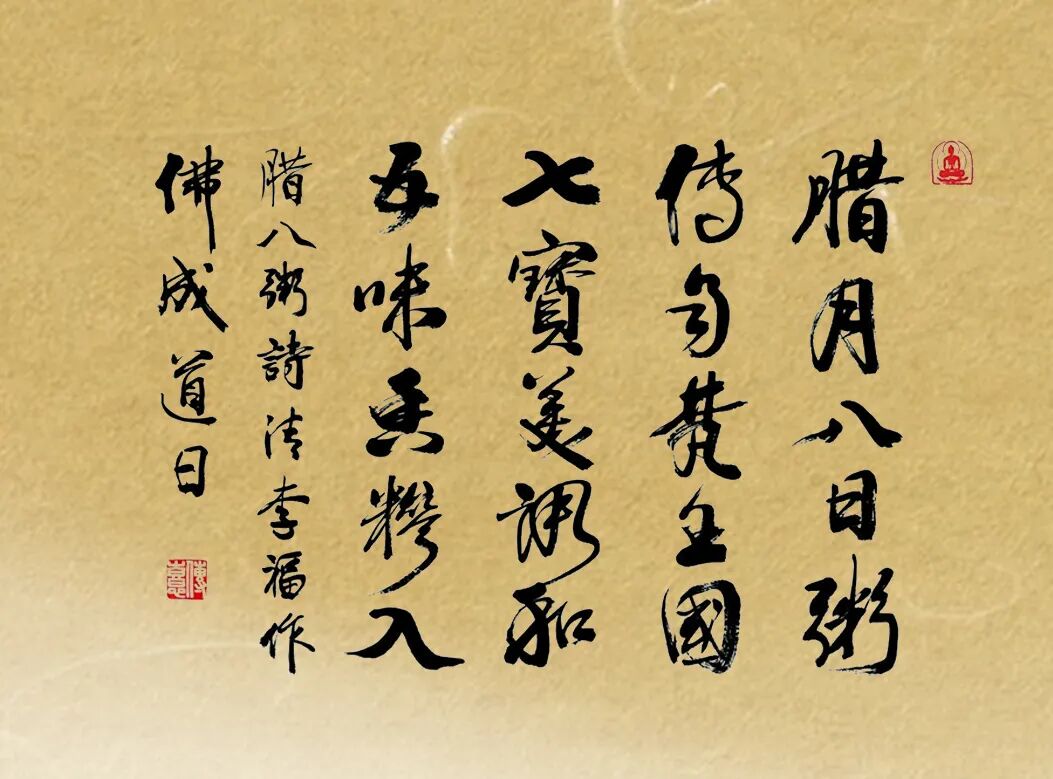 腊月八日粥
傳自梵王國
七寶美調和
五味香糝入
腊八粥詩清李福作
佛成道日